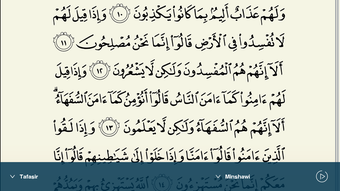 وَلَهُمْ عَذَابٌ أَلِيمٌ بِمَا كَانُوا۟ يَكْذِبُونَ ١٠ وَإِذَا قِيلَ لَهُمْ
لَا تُفْسِدُوا۟ فِى ٱلْأَرْضِ قَالُوٓا۟ إِنَّمَا نَحْنُ مُصْلِحُونَ ١١
أَلَآ إِنَّهُمْ هُمُ ٱلْمُفْسِدُونَ وَلَٰكِن لَّا يَشْعُرُونَ ١٢ وَإِذَا قِيلَ
لَهُمْ ءَامِنُوا۟ كَمَآ ءَامَنَ ٱلنَّاسُ قَالُوٓا۟ أَنُؤْمِنُ كَمَآ ءَامَنَ ٱلسُّفَهَآءُ ۗ
أَلَآ إِنَّهُمْ هُمُ ٱلسُّفَهَآءُ وَلَٰكِن لَّا يَعْلَمُونَ ١٣ وَإِذَا لَقُوا۟
ٱلَّذِينَ ءَامَنُوا۟ قَالُوٓا۟ ءَامَنَّا وَإِذَا خَلَوْا۟ إِلَىٰ شَيَٰطِينِهِمْ قَالُوٓا۟ إِنَّا
Tafasir
Minshawi